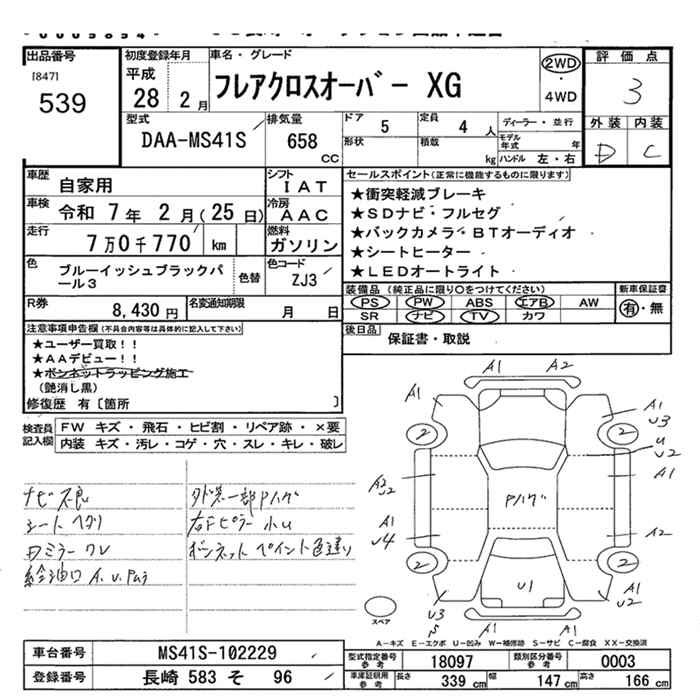 出品番号
[847]
539
初度登録年月
平成
28 2月
車名・グレード
フレアクロスオーバー XG
2WD
・
4WD
評価点
3
外装 内装
D C
型式
DAA-MS41S
排気量
658
CC
ドア
5
定員
4人
形状
積載
kg
ディーラー・並行
モデル年式 年
ハンドル 左・右
車歴
自家用
シフト
IAT
車検
令和 7年 2月(25日)
冷房
AAC
走行
7万0千770 km
燃料
ガソリン
色
ブルーイッシュブラックパール3
色替
色コード
ZJ3
R券
8,430円
名変通知期限
月 日
セールスポイント(正常に機能するものに限ります)
★衝突軽減ブレーキ
★SDナビ・フルセグ
★バックカメラ・BTオーディオ
★シートヒーター
★LEDオートライト
装備品(純正品に限り○をつけてください)
PS PW ABS エアB AW
SR ナビ TV カワ
新車保証書
有・無
後日品
保証書・取説
注意事項申告欄(不具合内容等は具体的に記入して下さい)
★ユーザー買取!!
★AAデビュー!!
★ボンネットラッピング施工
(艶消し黒)
修復歴 有〔箇所 〕
検査員記入欄
FW キズ・飛石・ヒビ割・リペア跡・×要
内装 キズ・汚レ・コゲ・穴・スレ・キレ・破レ
ナビ不良
シートヘタリ
Dミラーワレ
給油口 A.U.
外装一部Pハゲ
右Fピラー小U
ボンネットペイント色塗り
A1 A2
A1
A1
U3
2 2
U
U2
A2
U2
A1
Pハゲ
A1
U4
A2
2 2
U1
U3
S
A1 A1
A1
U2
スペア
A-キズ E-エクボ U-凹み W-補修跡 S-サビ C-腐食 XX-交換済
車台番号
MS41S-102229
登録番号
長崎 583 そ 96
型式指定番号
参考
18097
類別区分番号
参考
0003
車庫証明用
参考
長さ
339 cm
幅
147 cm
高さ
166 cm